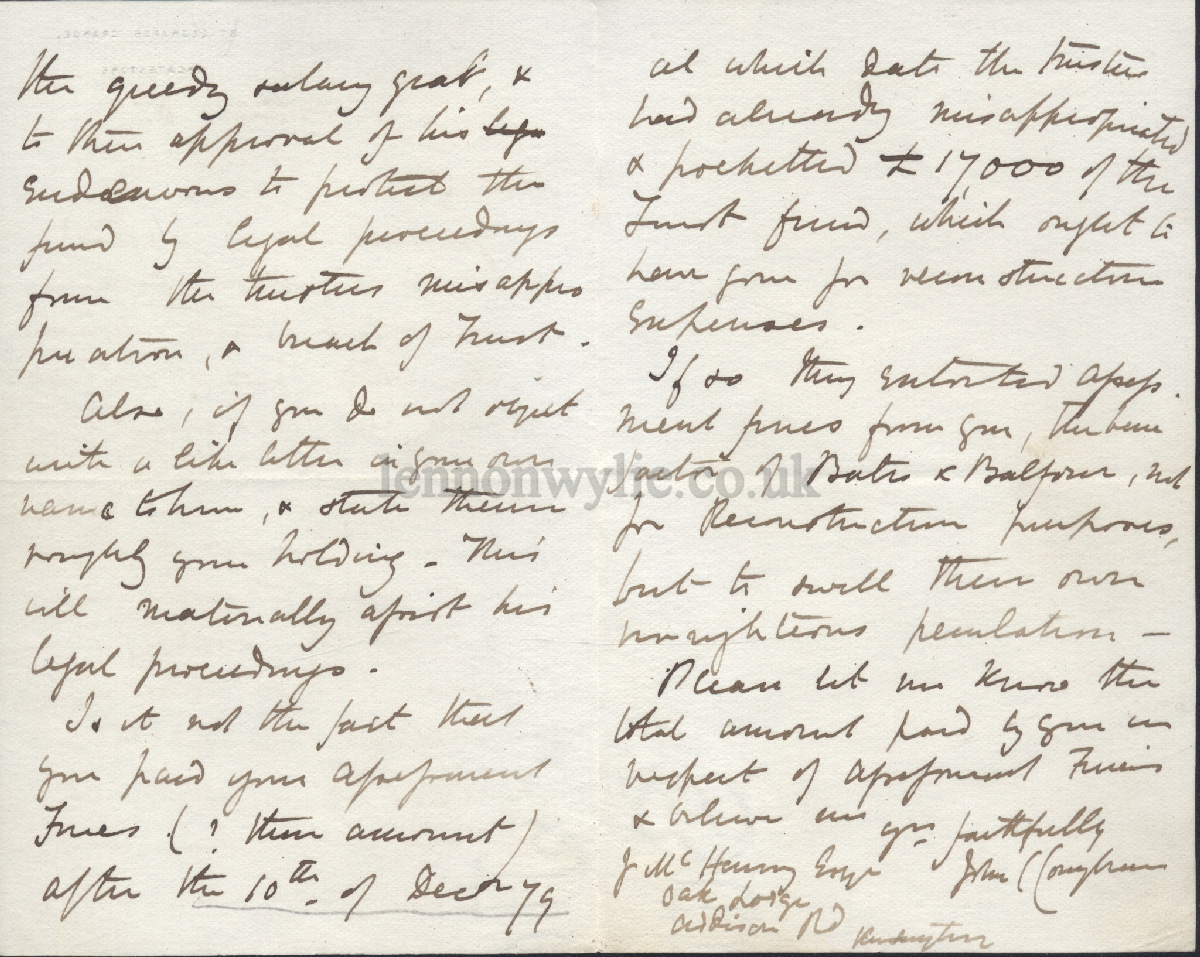 the greedy salary grab, &
to then approval of his lega
Endeavours to protect the
fund by legal proceedings
from the trustees misappro
priation, & breach of Trust.
Also, if you do not object
write a like letter in your own
name to him, & state therein
roughly your holding - This
will materially assist his
legal proceedings.
Is it not the fact that
you paid your assessment
Fines (? then amount)
after the 10th of Decr 79
at which date the trustees
had already misappropriated
& pocketted £17,000 of the
Trust fund, which ought to
have gone for reconstruction
Expenses.
If so they extorted assess
ment fines from you, the bene
factor of Bates & Balfour, not
for Reconstruction purposes,
but to swell their own
unrighteous peculation -
Please let me know the
total amount paid by you in
respect of assessment Fines
& believe me yrs faithfully
J McHenry Esqre John
Oak Lodge
Addison Rd Kensington
lennonwylie.co.uk